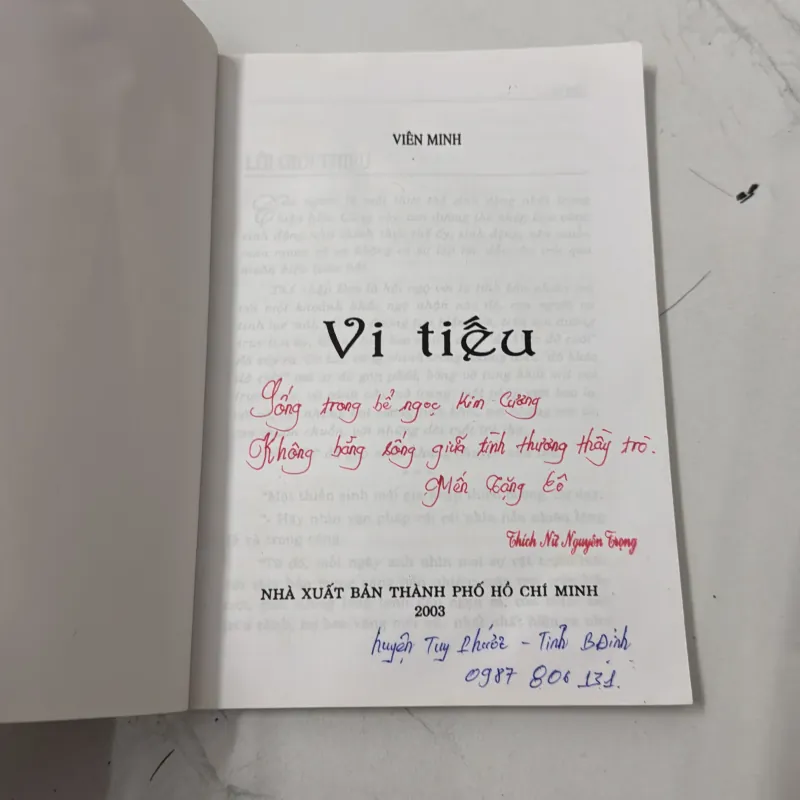 VIÊN MINH
Vi tiếu
Sống trong bể ngọc Kim Cương
Không bằng sống giữa tình thương thầy trò.
Mến Tặng Cô
Thích Nữ Nguyên Trọng
NHÀ XUẤT BẢN THÀNH PHỐ HỒ CHÍ MINH
2003
huyện Tuy Phước - Tỉnh BĐịnh
0987 806 131.